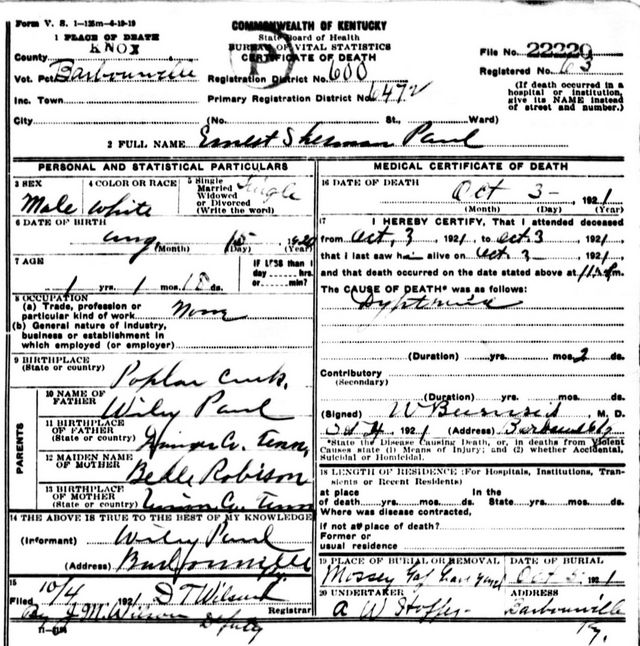 Form V. S. 1-125m-6-19-19
COMMONWEALTH OF KENTUCKY
State Board of Health
BUREAU OF VITAL STATISTICS
CERTIFICATE OF DEATH
1 PLACE OF DEATH
County KNOX
Vot. Pct. Barbourville
Inc. Town
City
(No. St., Ward)
Registration District No. 600
Primary Registration District No. 6472
File No. 22229
Registered No. 63
(If death occurred in a
hospital or institution,
give its NAME instead
of street and number.)
2 FULL NAME Ernest Sherman Paul
PERSONAL AND STATISTICAL PARTICULARS
3 SEX
Male
4 COLOR OR RACE
White
5 Single
Married
Widowed
or Divorced
(Write the word)
Single
6 DATE OF BIRTH
Aug 15 1920
(Month) (Day) (Year)
7 AGE
1 yrs. 1 mos. 18 ds.
If LESS than 1
day hrs.
or min.?
8 OCCUPATION
(a) Trade, profession or
particular kind of work None
(b) General nature of industry,
business or establishment in
which employed (or employer)
9 BIRTHPLACE
(State or country)
Poplar Creek.
PARENTS
10 NAME OF
FATHER
Wiley Paul
11 BIRTHPLACE
OF FATHER
(State or country)
Union Co. Tenn
12 MAIDEN NAME
OF MOTHER
Belle Robison
13 BIRTHPLACE
OF MOTHER
(State or country)
Union Co. Tenn
14 THE ABOVE IS TRUE TO THE BEST OF MY KNOWLEDGE
(Informant) Wiley Paul
(Address) Barbourville
15
Filed 10/4 1921 D T Wilson
Registrar
By J. M. Wilson Deputy
MEDICAL CERTIFICATE OF DEATH
16 DATE OF DEATH
Oct 3- 1921
(Month) (Day) (Year)
17 I HEREBY CERTIFY, That I attended deceased
from Oct, 3 1921 to Oct 3 1921
that I last saw h alive on Oct 3- 1921
and that death occurred on the date stated above at m.
The CAUSE OF DEATH* was as follows:
(Duration) yrs. mos. 2 ds.
Contributory
(Secondary)
(Duration) yrs. mos. ds.
(Signed) W Burnside, M. D.
Oct 4 1921 (Address) Barbourville Ky
*State the Disease Causing Death, or, in deaths from Violent
Causes state (1) Means of Injury; and (2) whether Accidental,
Suicidal or Homicidal.
18 LENGTH OF RESIDENCE (For Hospitals, Institutions, Transients or Recent Residents)
at place of death yrs. mos. ds. In the State yrs. mos. ds.
Where was disease contracted,
if not at place of death?
Former or
usual residence
19 PLACE OF BURIAL OR REMOVAL
Mossey Gap
DATE OF BURIAL
Oct 1921
20 UNDERTAKER
A W Stoffer
ADDRESS
Barbourville
Ky.